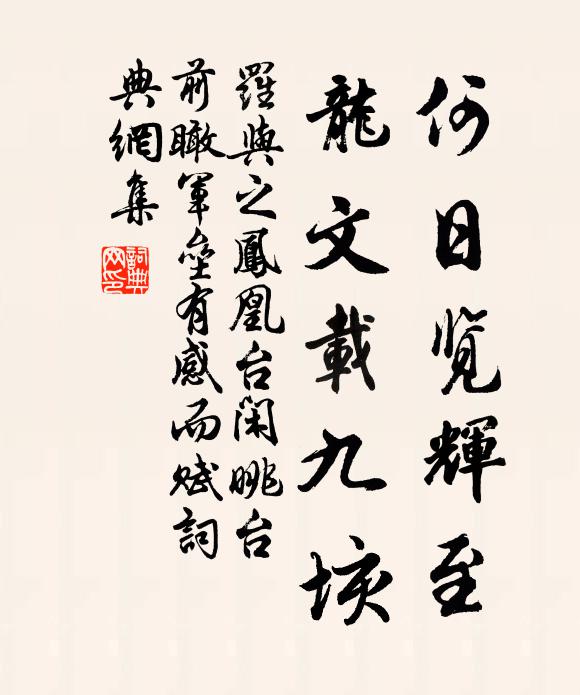 何日览輝至
龍文載九垓
羅與之鳳凰台闲眺台
前瞰軍壘有感而赋詞
典網集
詞典网印